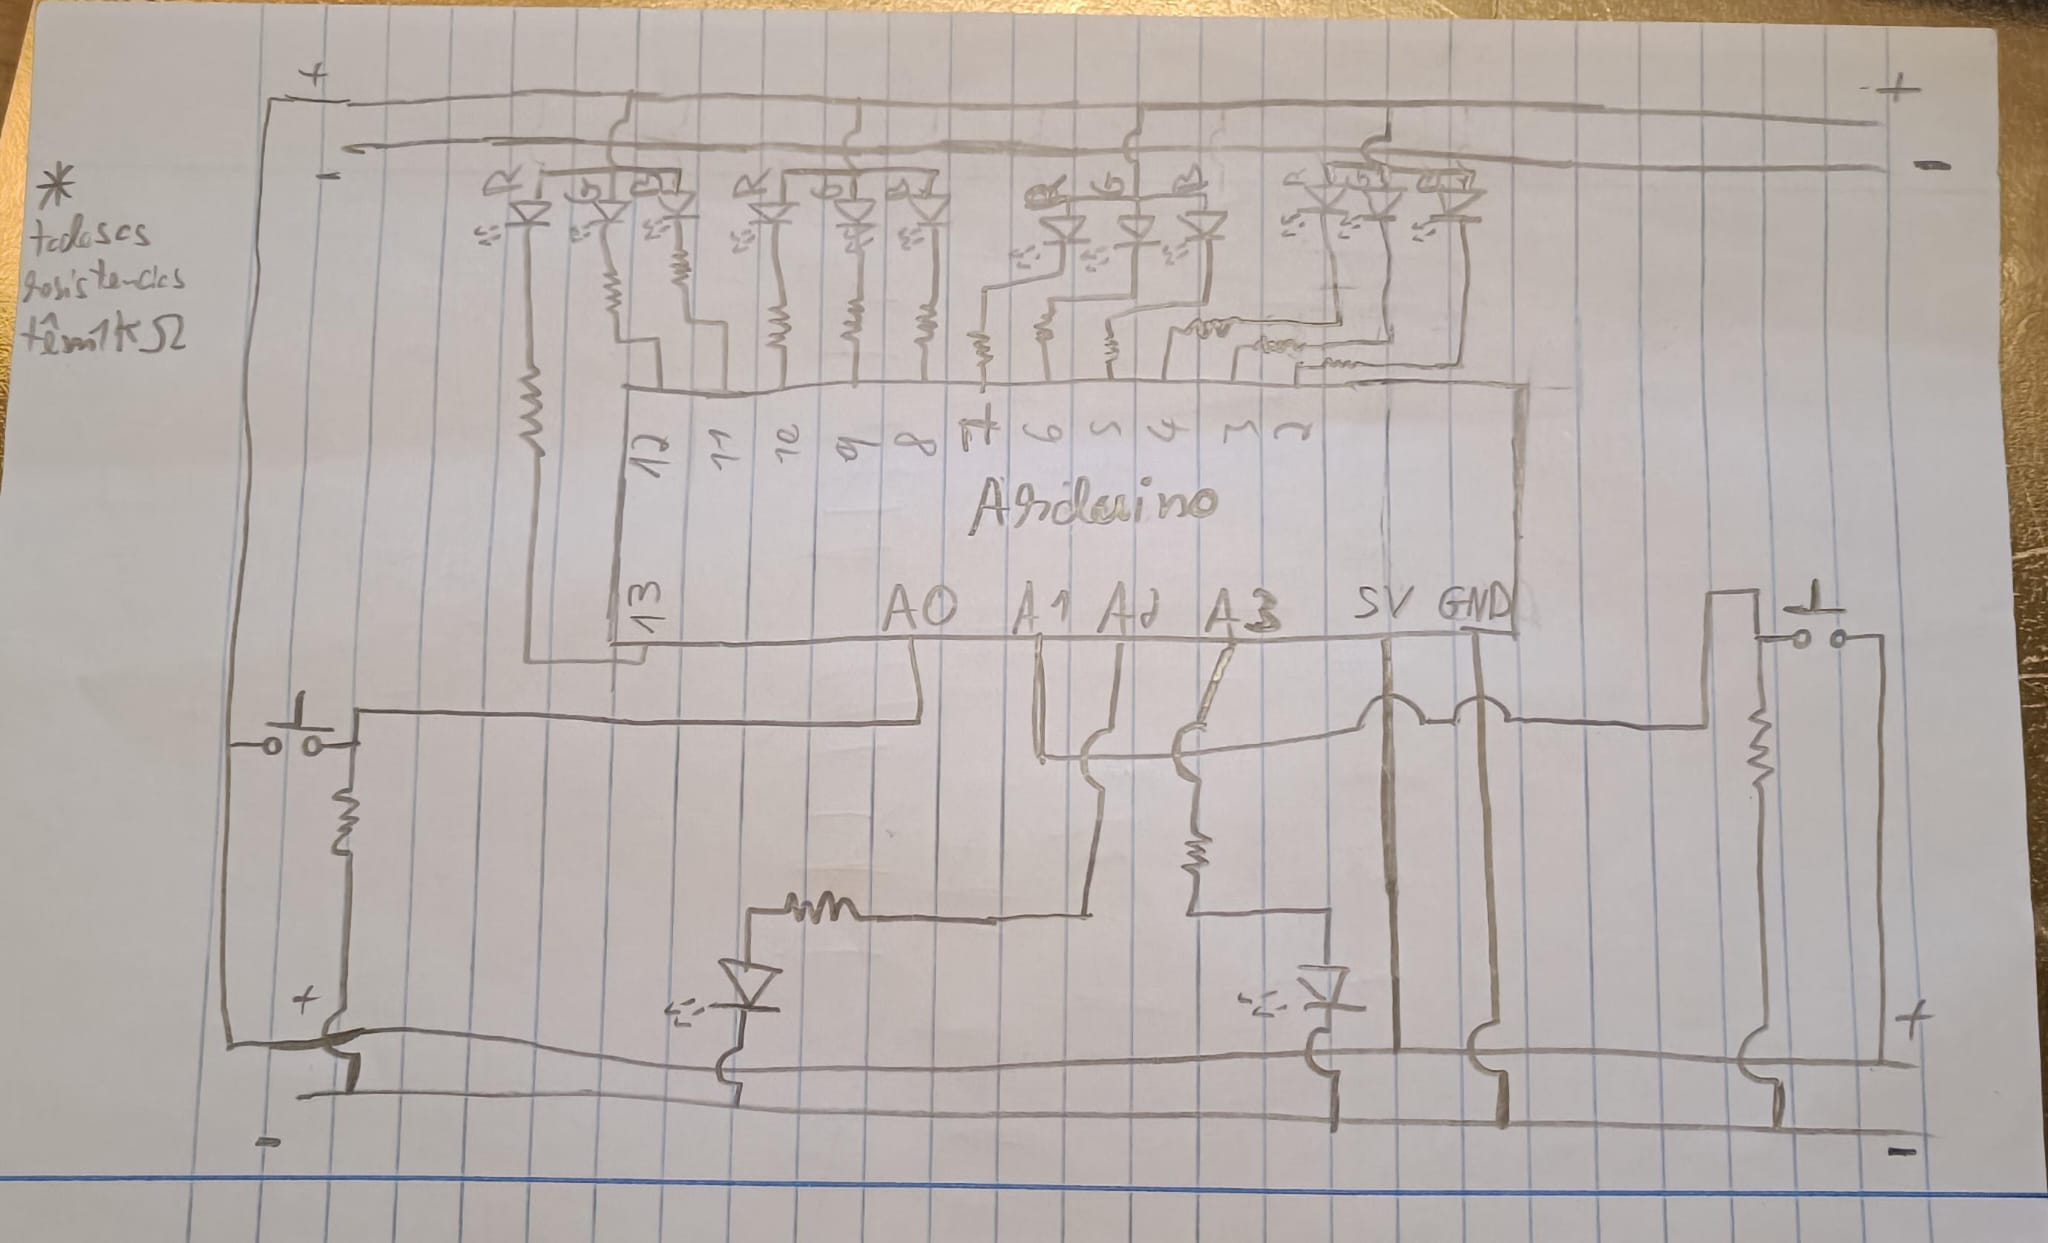 + +
- -
*
todas as
resistencias
têm 1KΩ
R G B R G B R G B R G B
12 11 10 9 8 7 6 5 4 3 2
Arduino
13 A0 A1 A2 A3 5V GND
+ +
- -